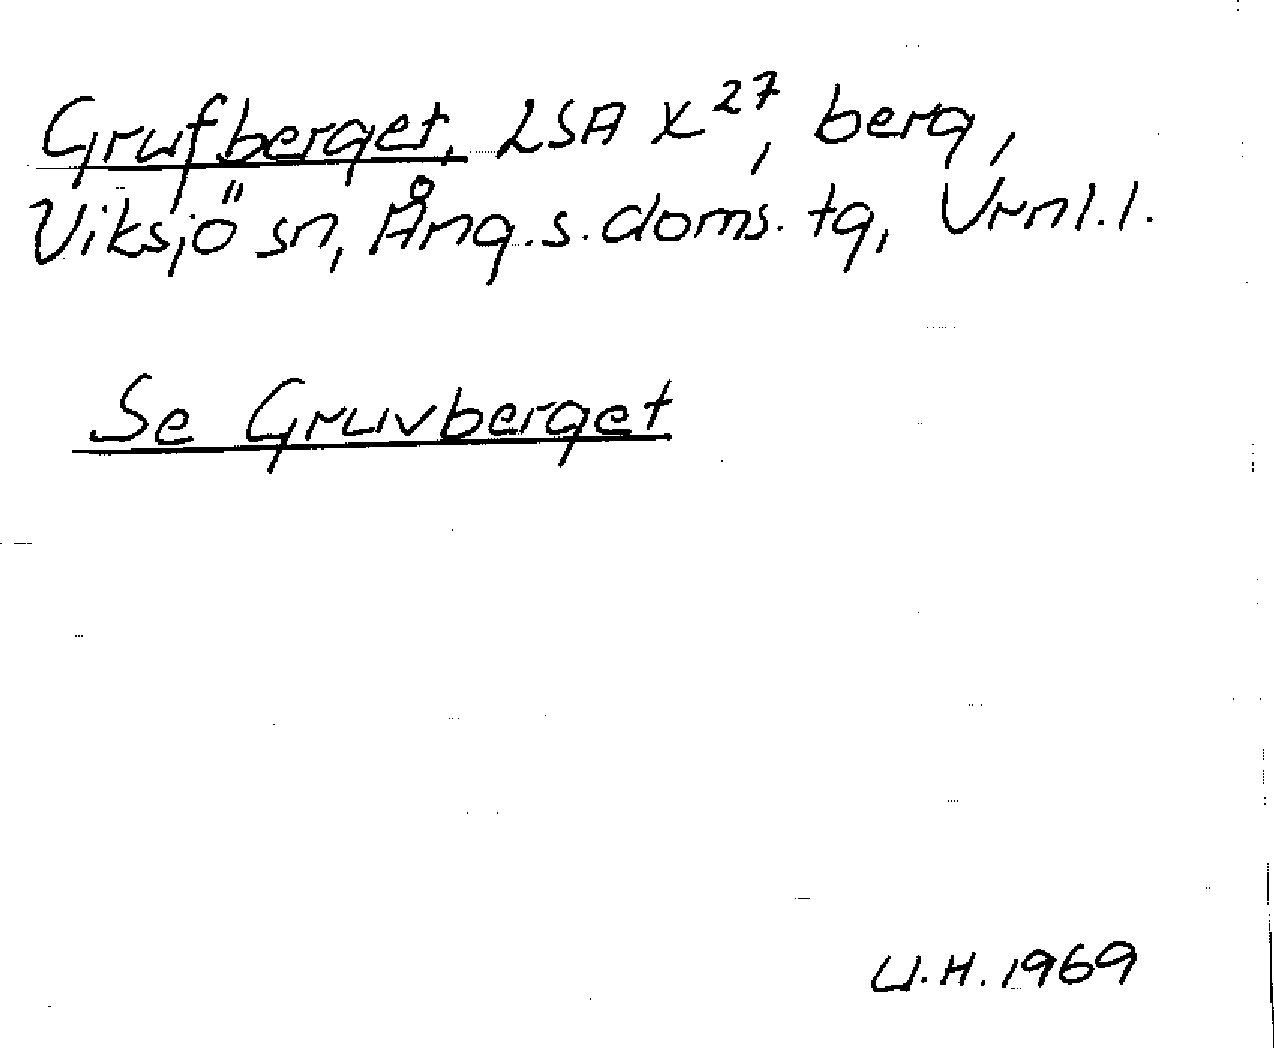 Grufberget, LSA X27, berg,
Viksjö sn, Ång.s.doms.tg, Vrnl.l.
Se Gruvberget
U.H. 1969